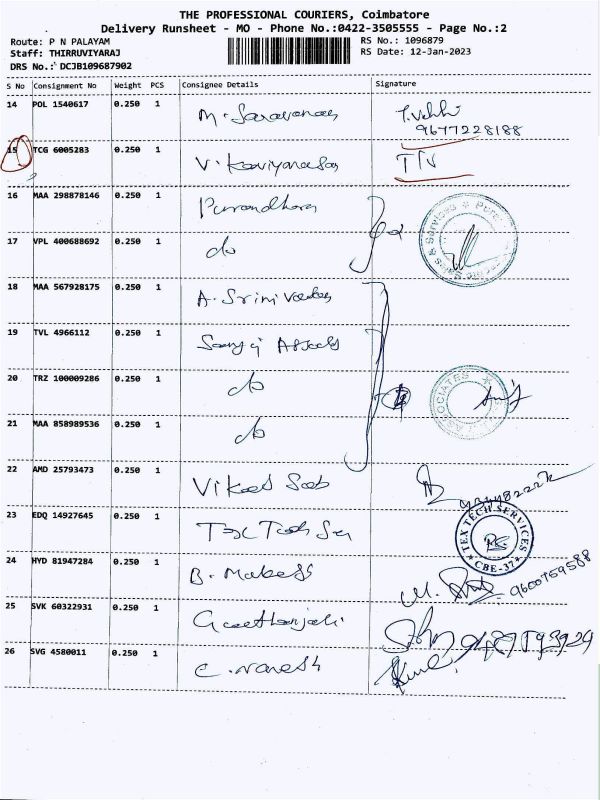 THE PROFESSIONAL COURIERS, Coimbatore
Delivery Runsheet - MO - Phone No.:0422-3505555 - Page No.:2
Route: P N PALAYAM
RS No.: 1096879
Staff: THIRRUVIYARAJ
RS Date: 12-Jan-2023
DRS No.: DCJB109687902
S No Consignment No Weight PCS Consignee Details Signature
14 POL 1540617 0.250 1 M. Saravanan
9677228188
15 TCG 6005283 0.250 1 V. Kaviyarasan
16 MAA 298878146 0.250 1 Purandhara
17 VPL 400688692 0.250 1 do
18 MAA 567928175 0.250 1 A. Srinivasan
19 TVL 4966112 0.250 1
20 TRZ 100009286 0.250 1 do
ASSOCIATES
21 MAA 858989536 0.250 1 do
22 AMD 25793473 0.250 1
23 EDQ 14927645 0.250 1 Tex Tech Ser
TEX TECH SERVICES
CBE-37
24 HYD 81947284 0.250 1 B. Mahesh
9600759588
25 SVK 60322931 0.250 1 Geethanjali
26 SVG 4580011 0.250 1 C. Naresh